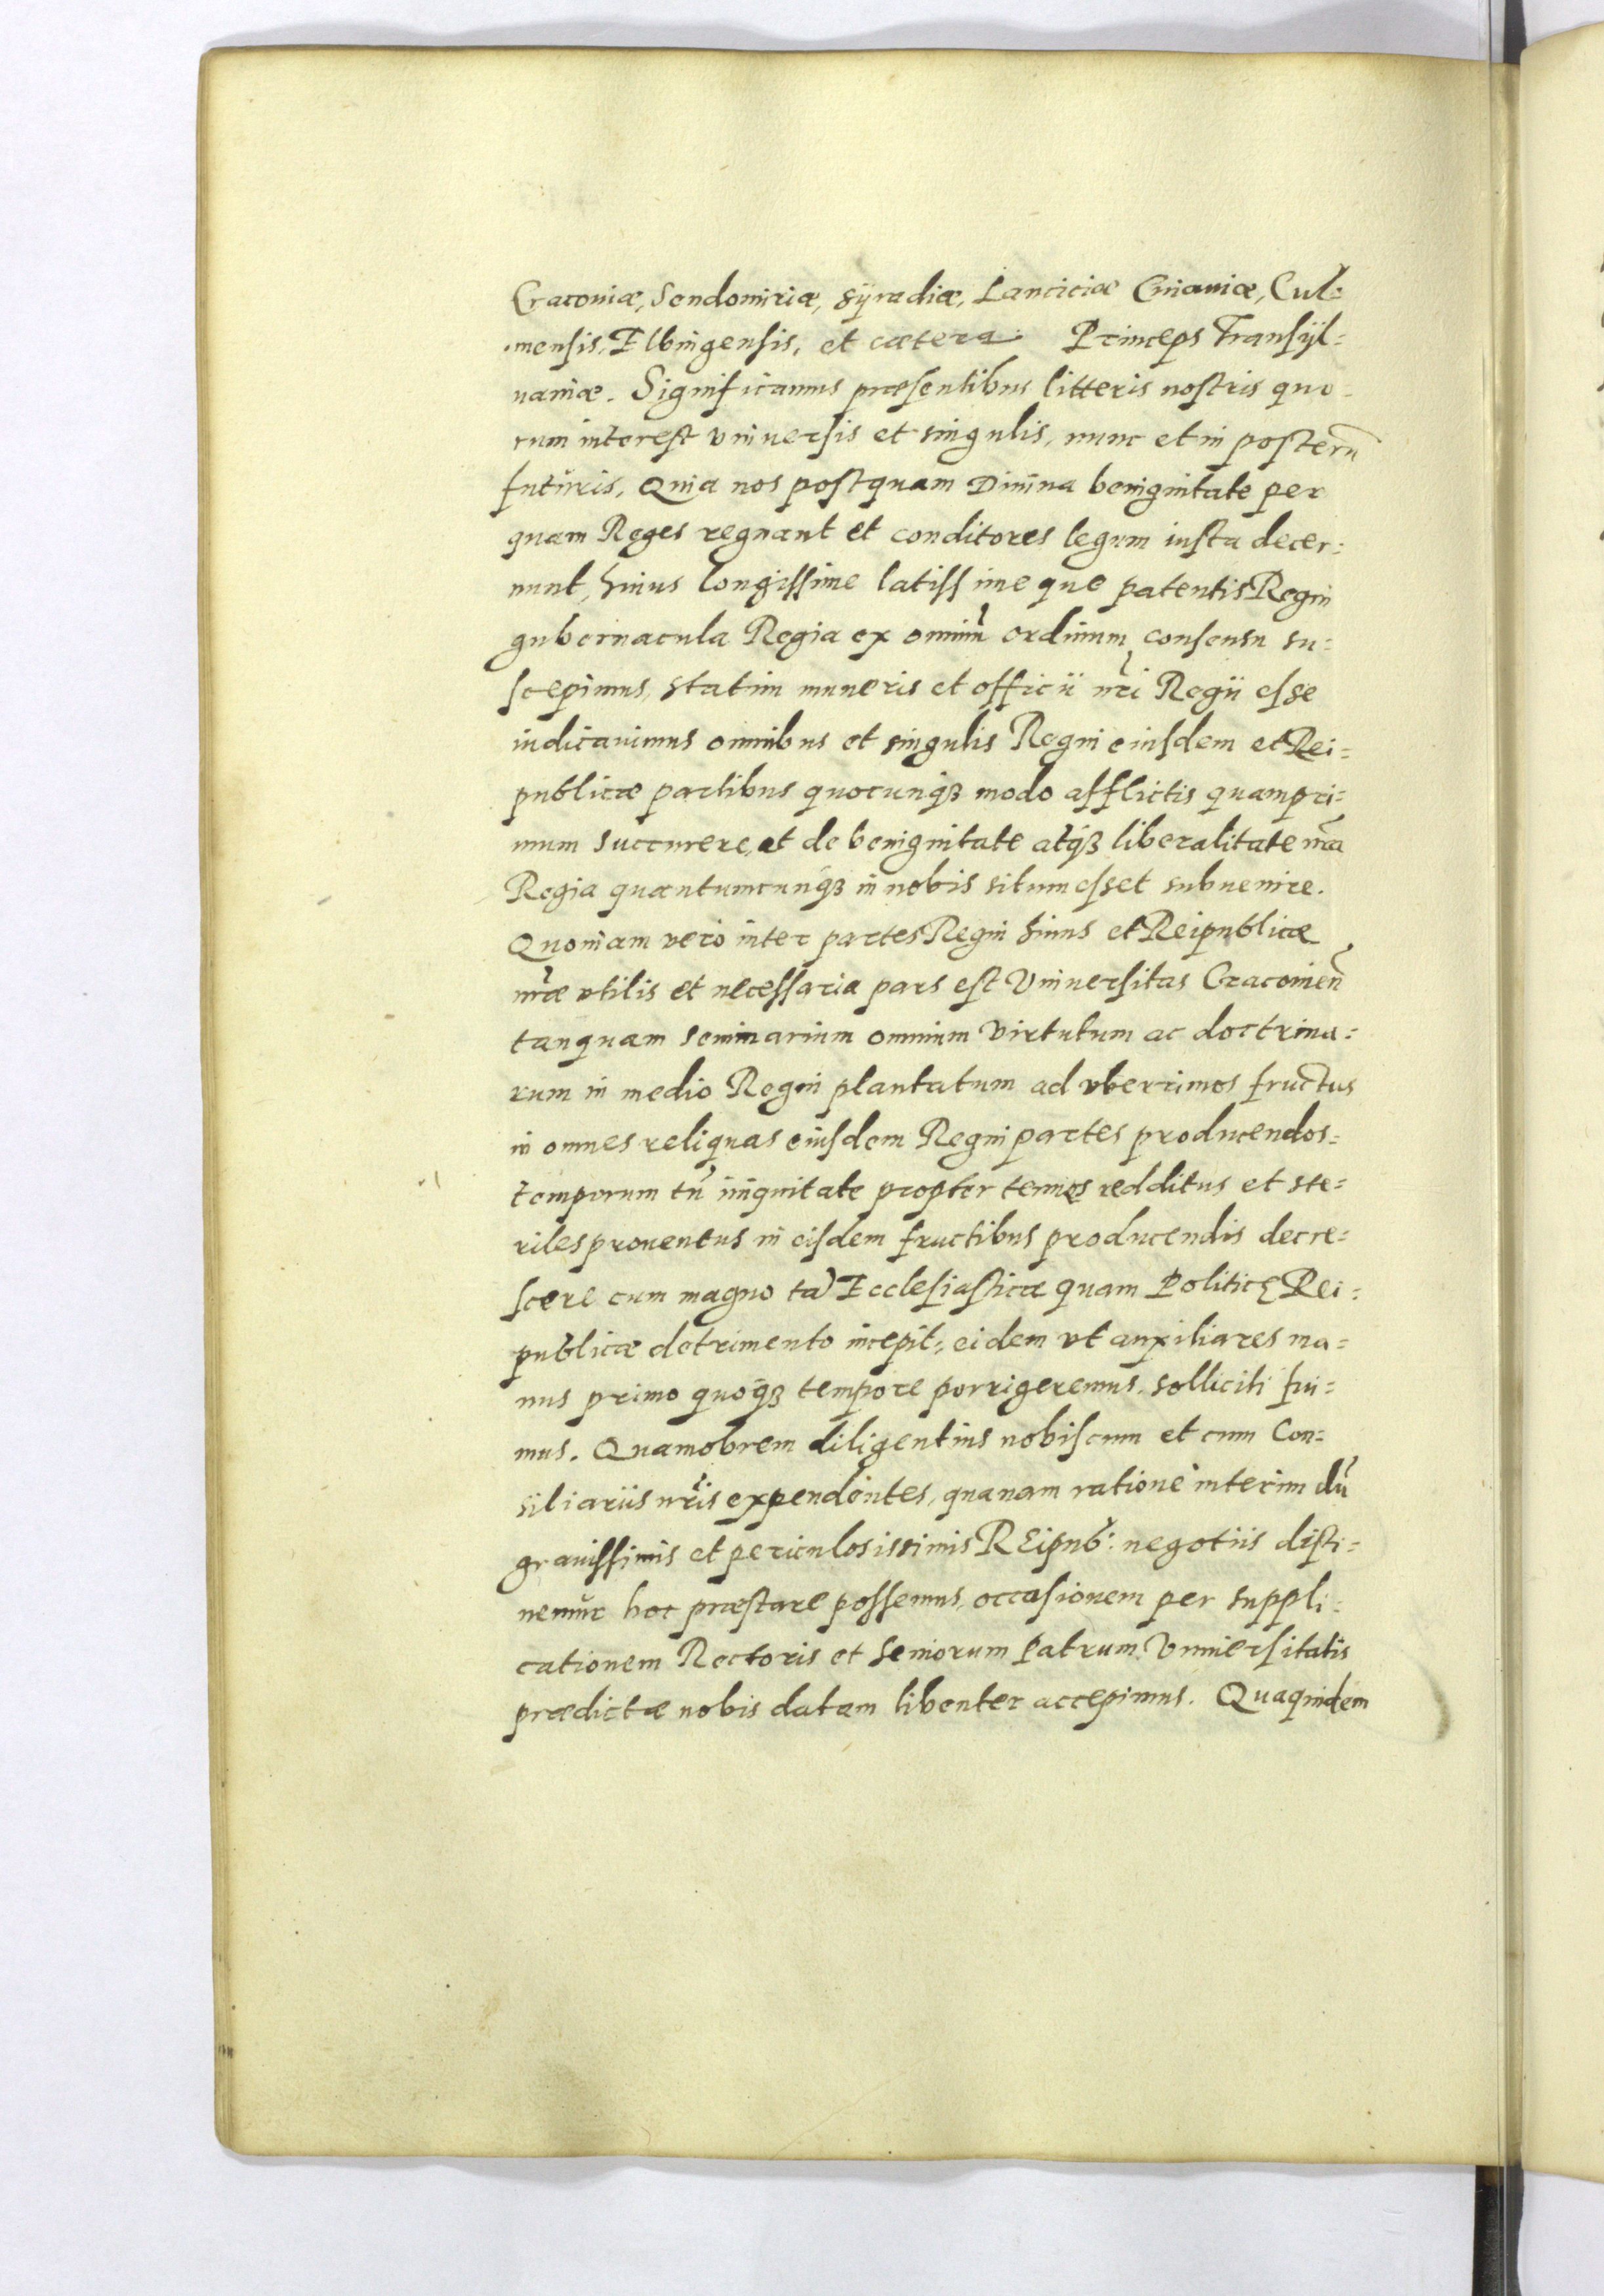 Cracoviæ, Sendomiriæ, Syradiæ, Lanciciæ Cuiauiæ, Cul=
mensis, Elbingensis, et cætera. Princeps Transÿl=
uaniæ. Significamus præsentibus litteris nostris quo-
rum interest vniuersis et singulis, nunc et in posterũ
futuris, Quia nos postquam Diuina benignitate per
quam Reges regnant et conditores legum iusta decer=
nunt, huius longissime latissimeque patentis Regni
gubernacula Regia ex omniũ ordinum consensu su=
scepimus, statim muneris et officii nr̃i Regii esse
iudicauimus omnibus et singulis Regni eiusdem et Rei=
publicæ partibus quocunqꝫ modo afflictis quampri=
mum succurrere, et de benignitate atqꝫ liberalitate nr̃a
Regia quantumcunqꝫ in nobis situm esset subuenire.
Quoniam vero inter partes Regni huius et Reipublicæ
nr̃æ vtilis et necessaria pars est Vniuersitas Cracouieñ
tanquam seminarium omnium virtutum ac doctrina=
rum in medio Regni plantatum ad vberrimos fructus
in omnes reliquas eiusdem Regni partes producendos=
temporum tñ iniquitate propter tenues redditus et ste=
riles prouentus in eisdem fructibus producendis decre=
scere cum magno tã Ecclesiasticæ quam Politicę Rei=
publicæ detrimento incepit, eidem vt auxiliares ma=
nus primo quoqꝫ tempore porrigeremus, solliciti fui=
mus. Quamobrem diligentius nobiscum et cum Con=
siliariis nr̃is expendentes, quanam ratione interim dũ
grauissimis et periculosissimis REipub: negotiis disti=
nemur hoc præstare possemus, occasionem per suppli=
cationem Rectoris et Seniorum Patrum Vniuersitatis
prædictæ nobis datam libenter accepimus. Qua quidem